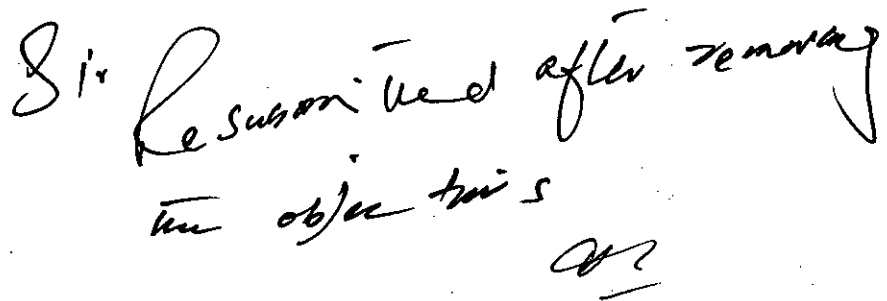 Sir
Resubmitted after removing
the objections